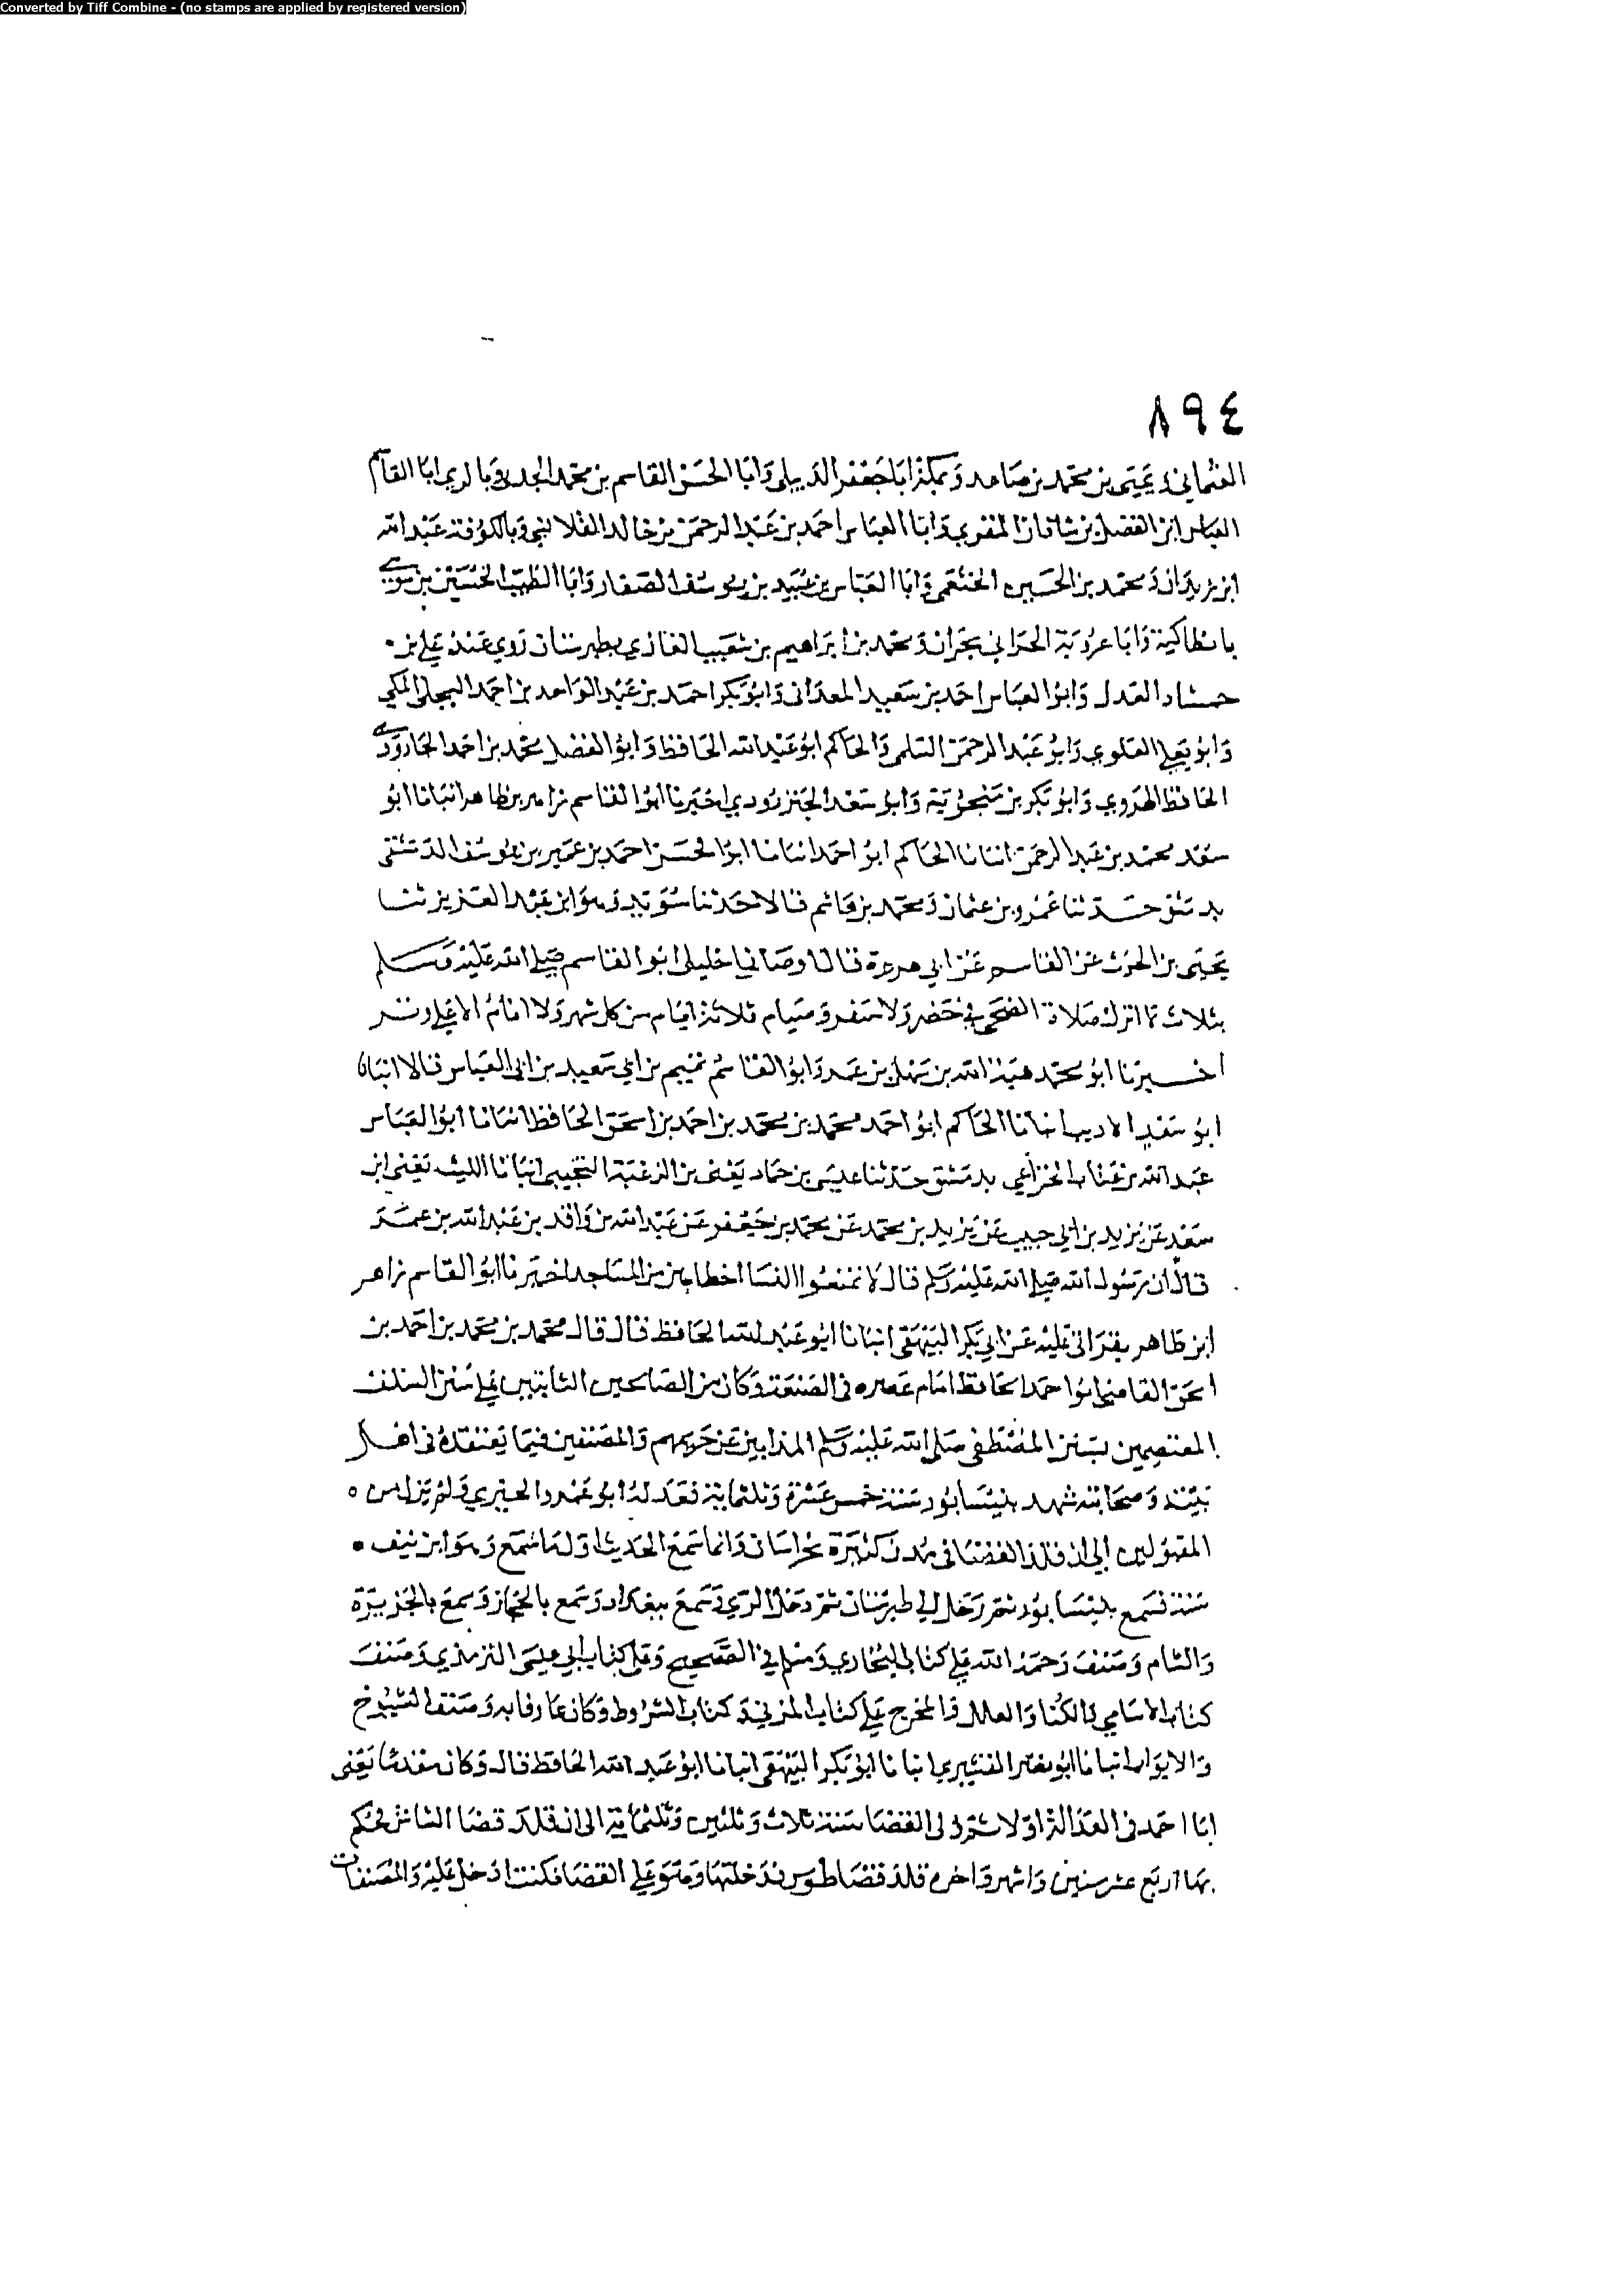 Converted by Tiff Combine - (no stamps are applied by registered version)
٨٩٤
العثماني ويحيى بن محمد بن صاعد وبمكة ابا جعفر الديبلي وابا الحسن القاسم بن محمد الجدي وبالري ابا القاسم
العباس ابن الفضل بن شاذان المقري وابا العباس احمد بن عبد الرحمن بن خالد القلانسي وبالكوفة عبد الله
ابن زيدان ومحمد بن الحسين الخثعمي وابا العباس بن عبيد بن يوسف الصفار وابا الطيب الحسين بن موسى
بانطاكية وابا عروبة الحراني بحران ومحمد بن ابراهيم بن شعيب الغازي بطبرستان روي عنه علي بن
حمشاد العدل وابو العباس احمد بن سعيد المعداني وابو بكر احمد بن عبد الواحد بن احمد البجلي المكي
وابو يعلي العلوي وابو عبد الرحمن السلمي والحاكم ابو عبد الله الحافظ وابو الفضل محمد بن احمد الجارودي
الحافظ الهروي وابو بكر بن منجويه وابو سعد الجنزرودي اخبرنا ابو القاسم زاهر بن طاهر انبانا ابو
سعد محمد بن عبد الرحمن انبانا الحاكم ابو احمد انبانا ابو الحسن احمد بن عمير بن يوسف الدمشقي
بدمشق حدثنا عمرو بن عثمان ومحمد بن هاشم قالا حدثنا سويد وهو ابن عبد العزيز ثنا
يحيى بن الحرث عن القاسم عن ابي هريرة قال اوصاني خليلي ابو القاسم صلى الله عليه وسلم
بثلاث لا اترك صلاة الضحى في حضر ولا سفر وصيام ثلاثة ايام من كل شهر ولا انام الا علي وتر
اخبرنا ابو محمد هبة الله بن سهل بن عمر وابو القاسم تميم بن ابي سعيد بن ابي العباس قالا انبانا
ابو سعد الاديب انبانا الحاكم ابو احمد محمد بن محمد بن احمد بن اسحق الحافظ انبانا ابو العباس
عبد الله بن عتاب الخزاعي بدمشق حدثنا عيسى بن حماد يعني بن الزغبة التجيبي انبانا الليث يعني ابن
سعد عن يزيد بن ابي حبيب عن يزيد بن محمد عن محمد بن جعفر عن عبد الله بن واقد بن عبد الله بن عمر
قال ان رسول الله صلى الله عليه وسلم قال لا تمنعوا النسا احظاهن من المساجد اخبرنا ابو القاسم زاهر
ابن طاهر بقراتي عليه عن ابي بكر البيهقي انبانا ابو عبد الله الحافظ قال قال محمد بن محمد بن احمد بن
اسحق القاضي ابو احمد الحافظ امام عصره في الصنعة وكان من الصالحين الثابتين علي سنن السلف
المعتصمين بسنن المصطفى صلى الله عليه وسلم المذابين عن حريمهم والمصنفين فيما يعتقده في اهل
بيته وصحابته شهد بنيسابور سنة خمس عشرة وثلثماية فعدله ابو عمرو الحيري ولم يزل من
المقبولين الي ان قلد القضا في مدن كثيرة بخراسان وانما سمع الحديث اول ما سمع وهو ابن نيف
سنة فسمع بنيسابور ثم رحل الي طبرستان ثم دخل الري وسمع ببغداد وسمع بالحجاز وسمع بالجزيرة
والشام وصنف رحمه الله علي كتابي البخاري ومسلم في الصحيح وعلى كتاب ابي عيسى الترمذي وصنف
كتاب الاسامي والكنا والعلل والمخرج علي كتاب المزني وكتاب الشروط وكان عارفا به وصنف الشيوخ
والابواب انبانا ابو نصر القشيري انبانا ابو بكر البيهقي انبانا ابو عبد الله الحافظ قال وكان مقدما يعني
ابا احمد في العدالة اولا ثم ولي القضا سنة ثلاث وثلثين وثلثماية الى ان قلد قضا الشاش فحكم
بها اربع سنين واشهر واخره قلد قضا طوس فدخلتها وهو علي القضا فكنت ادخل عليه والمصنفات